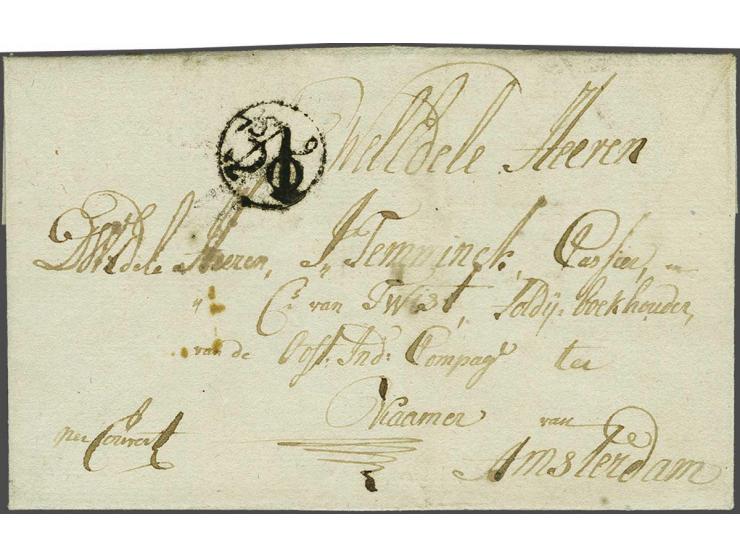 WelEdele Heeren
Wel Edele Heeren, J„ Temminck, Cassier, en
„ Cs. van Twist, Soldij-boekhouder,
van de Oost. Ind: Compagie ter
Kaamer van
per Couvert Amsterdam